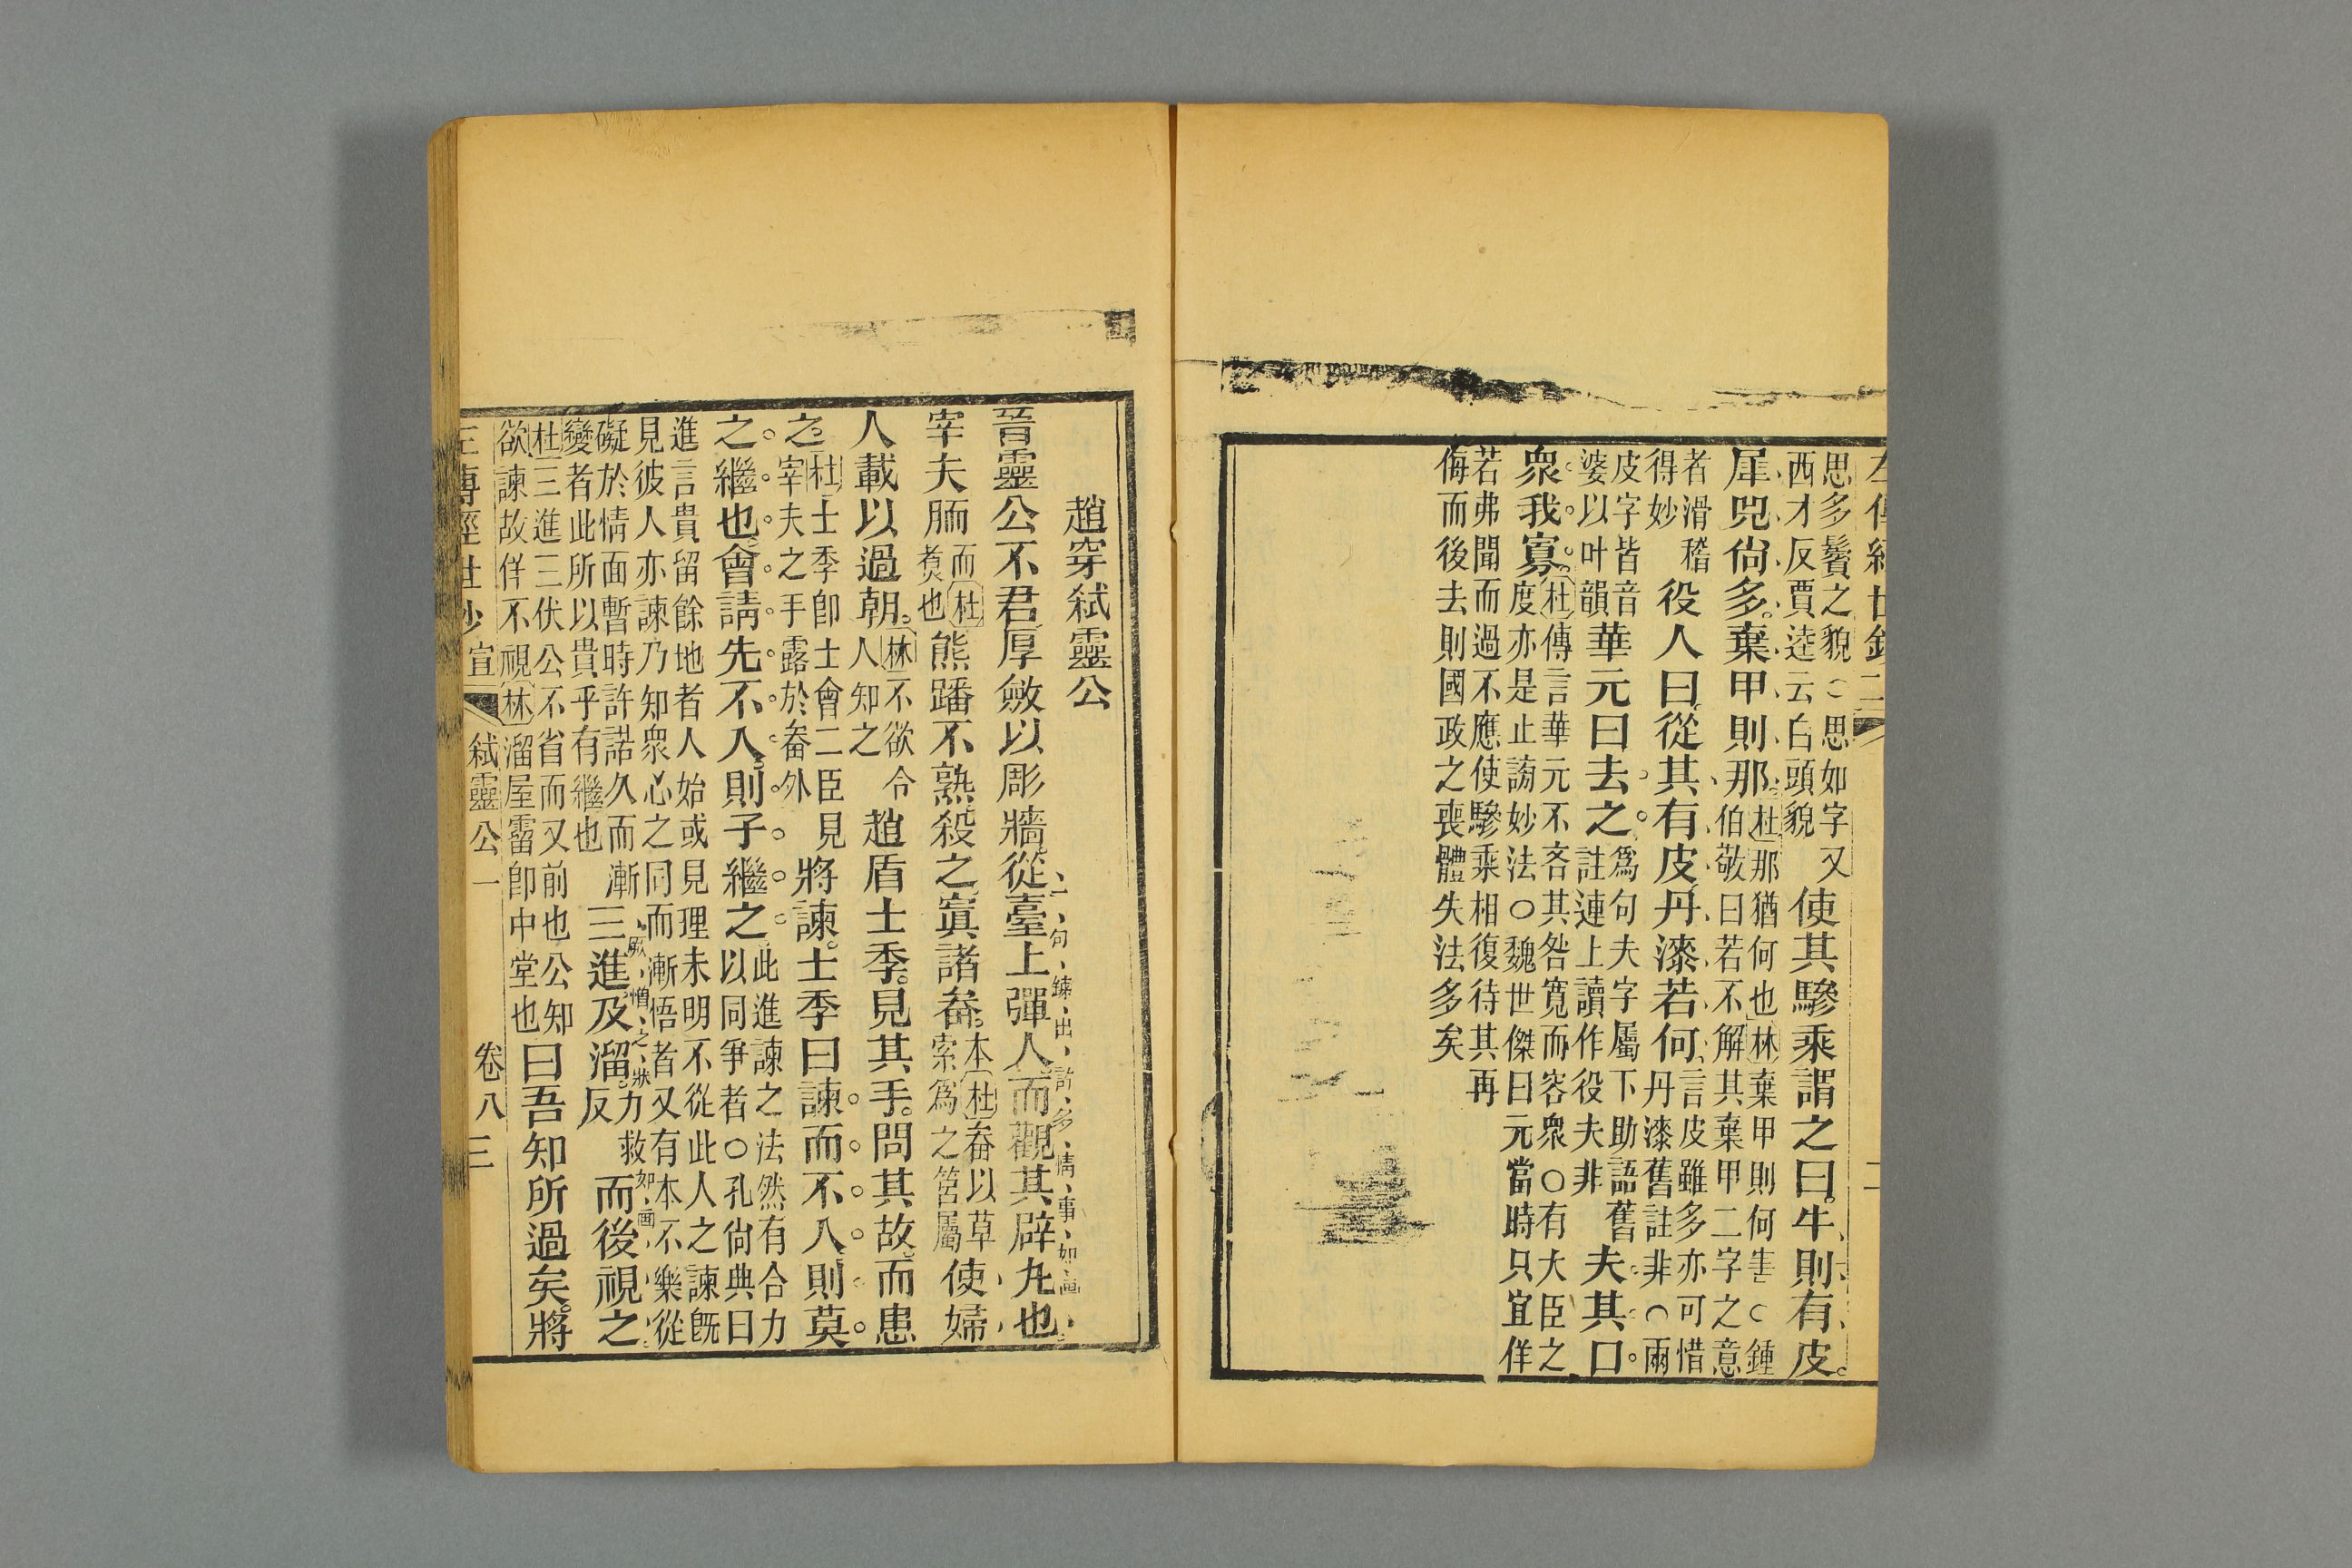 思多鬢之貌○思如字又
西才反賈逵云白頭貌
使其驂乘謂之曰牛則有皮
犀兕尙多棄甲則那
杜那猶何也林棄甲則何害○鍾
伯敬曰若不解其棄甲二字之意
者滑稽
得妙
役人曰從其有皮丹漆若何
言皮雖多亦可惜
丹漆舊註非○兩
皮字皆音爲句夫字屬下助語舊
婆以叶韻
華元曰去之
註連上讀作役夫非
夫其口
衆我寡
杜傳言華元不吝其咎寬而容衆○有大臣之
度亦是止謗妙法○魏世傑曰元當時只宜佯
若弗聞而過不應使驂乘相復待其再
侮而後去則國政之喪體失法多矣
趙穿弑靈公
晉靈公不君厚斂以彫牆從臺上彈人而觀其辟丸也
句鍊出許多情事如畫
宰夫胹
而杜
煑也
熊蹯不熟殺之寘諸畚
本杜畚以草
索爲之筥屬
使婦
人載以過朝
林不欲令
人知之
趙盾士季見其手問其故而患
之
杜士季卽士會二臣見
宰夫之手露於畚外
將諫士季曰諫而不入則莫
之繼也會請先不入則子繼之
此進諫之法然有合力
以同爭者○孔尙典曰
進言貴留餘地者人始或見理未明不從此人之諫旣
見彼人亦諫乃知衆心之同而漸悟者又有本不樂從
礙於情面暫時許諾久而漸
變者此所以貴乎有繼也
三進及溜
厭憎之狀
力救
反
而後視之
如画
杜三進三伏公不省而又前也公知
欲諫故佯不視林溜屋霤卽中堂也
曰吾知所過矣將
宣
弑靈公一
卷八
三